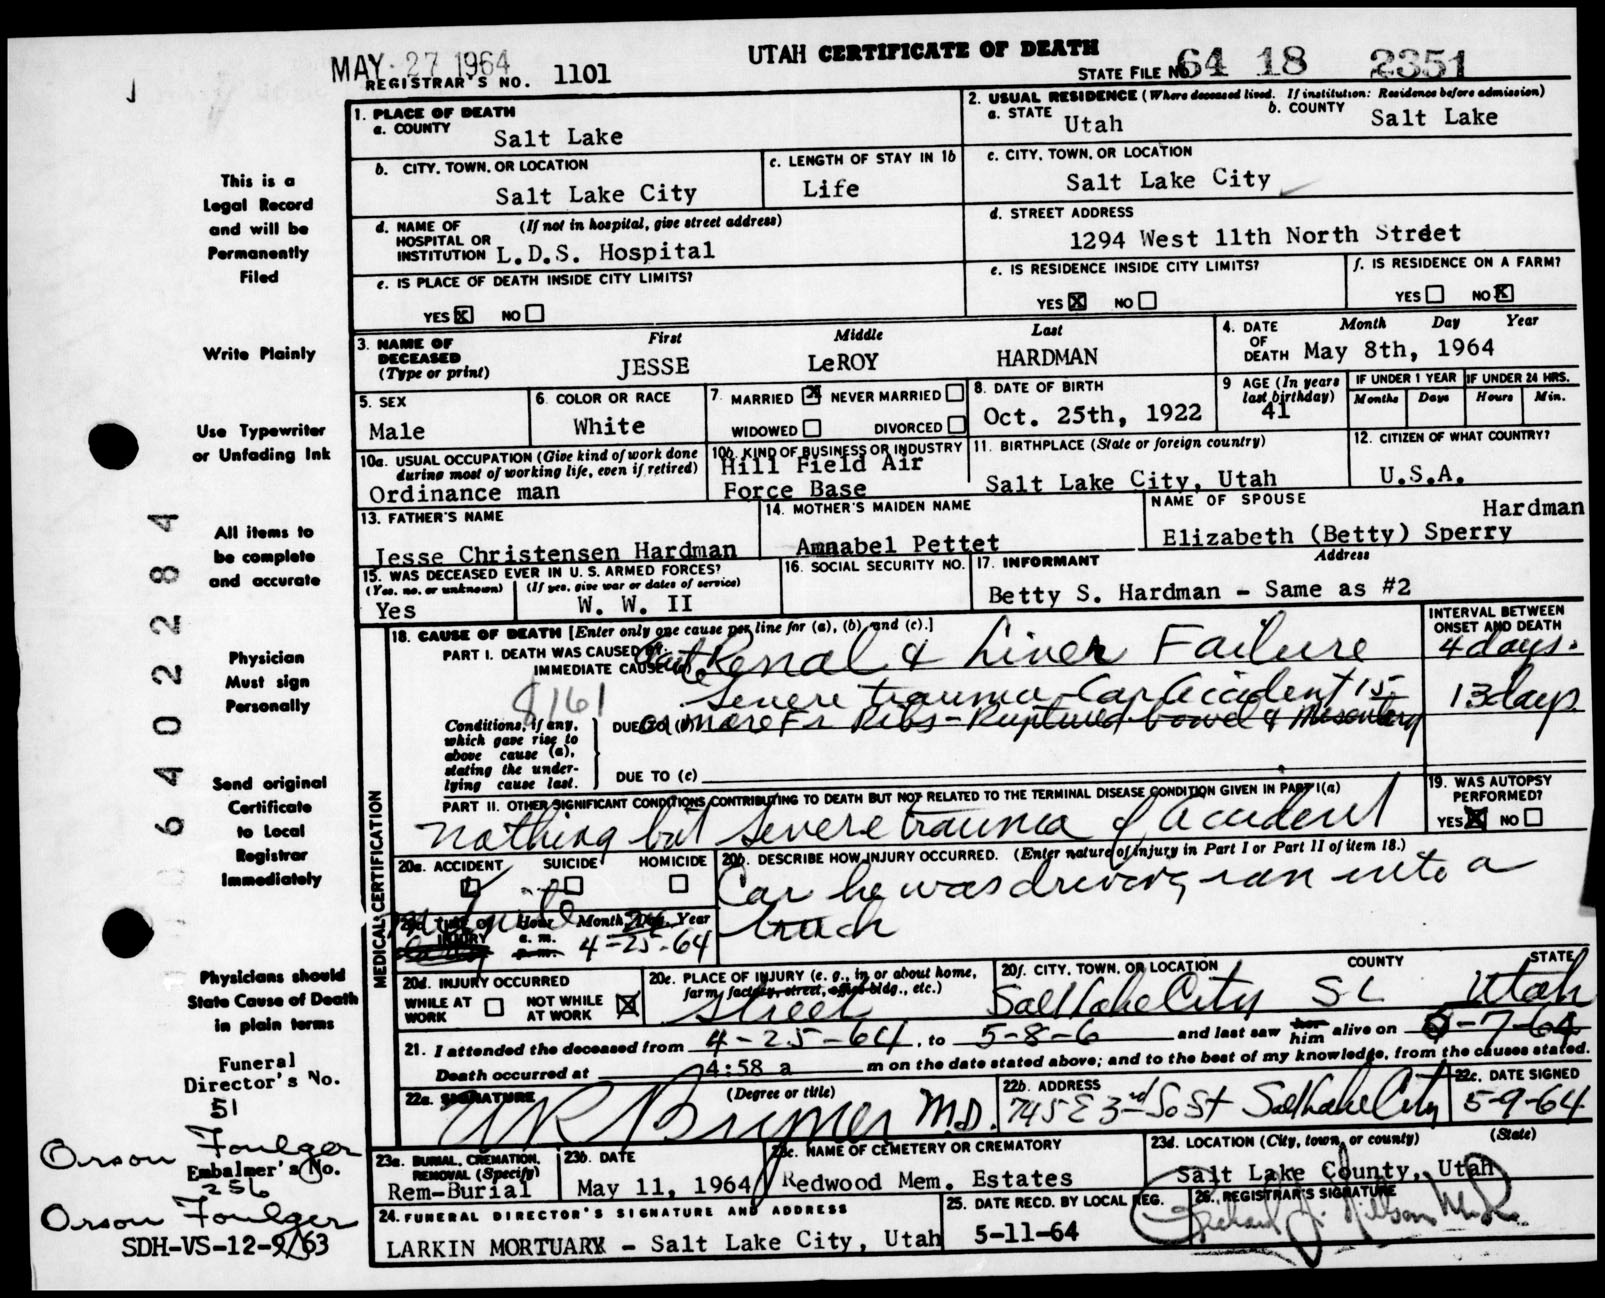 UTAH CERTIFICATE OF DEATH
MAY 27 1964
REGISTRAR'S NO. 1101
STATE FILE NO. 64 18 2351
1. PLACE OF DEATH
a. COUNTY Salt Lake
2. USUAL RESIDENCE (Where deceased lived. If institution: Residence before admission)
a. STATE Utah b. COUNTY Salt Lake
b. CITY, TOWN, OR LOCATION Salt Lake City
c. LENGTH OF STAY IN 1b Life
c. CITY, TOWN, OR LOCATION Salt Lake City
d. NAME OF HOSPITAL OR INSTITUTION (If not in hospital, give street address) L.D.S. Hospital
d. STREET ADDRESS 1294 West 11th North Street
e. IS PLACE OF DEATH INSIDE CITY LIMITS? YES X NO
e. IS RESIDENCE INSIDE CITY LIMITS? YES X NO
f. IS RESIDENCE ON A FARM? YES NO X
3. NAME OF DECEASED (Type or print) First JESSE Middle LeROY Last HARDMAN
4. DATE OF DEATH Month Day Year May 8th, 1964
5. SEX Male
6. COLOR OR RACE White
7. MARRIED X NEVER MARRIED WIDOWED DIVORCED
8. DATE OF BIRTH Oct. 25th, 1922
9 AGE (In years last birthday) 41
IF UNDER 1 YEAR Months Days IF UNDER 24 HRS. Hours Min.
10a. USUAL OCCUPATION (Give kind of work done during most of working life, even if retired) Ordinance man
10b. KIND OF BUSINESS OR INDUSTRY Hill Field Air Force Base
11. BIRTHPLACE (State or foreign country) Salt Lake City, Utah
12. CITIZEN OF WHAT COUNTRY? U.S.A.
13. FATHER'S NAME Jesse Christensen Hardman
14. MOTHER'S MAIDEN NAME Annabel Pettet
NAME OF SPOUSE Elizabeth (Betty) Sperry Hardman
15. WAS DECEASED EVER IN U. S. ARMED FORCES? (Yes, no, or unknown) Yes (If yes, give war or dates of service) W. W. II
16. SOCIAL SECURITY NO.
17. INFORMANT Address Betty S. Hardman - Same as #2
MEDICAL CERTIFICATION
18. CAUSE OF DEATH [Enter only one cause per line for (a), (b), and (c).]
INTERVAL BETWEEN ONSET AND DEATH
PART I. DEATH WAS CAUSED BY: IMMEDIATE CAUSE (a) Renal & Liver Failure 4 days.
8161
Conditions, if any, which gave rise to above cause (a), stating the underlying cause last.
Severe trauma - Car Accident 15
DUE TO (b) or more Fr Ribs - Ruptured bowel & Mesentery 13 days
DUE TO (c)
PART II. OTHER SIGNIFICANT CONDITIONS CONTRIBUTING TO DEATH BUT NOT RELATED TO THE TERMINAL DISEASE CONDITION GIVEN IN PART I(a)
nothing but severe trauma of accident
19. WAS AUTOPSY PERFORMED? YES X NO
20a. ACCIDENT SUICIDE HOMICIDE
20b. DESCRIBE HOW INJURY OCCURRED. (Enter nature of injury in Part I or Part II of item 18.)
Car he was driving ran into a truck
20c. TIME OF INJURY Hour a. m. p. m. Month, Day, Year 4-25-64
20d. INJURY OCCURRED WHILE AT WORK NOT WHILE AT WORK X
20e. PLACE OF INJURY (e. g., in or about home, farm, factory, street, office bldg., etc.) Street
20f. CITY, TOWN, OR LOCATION Salt Lake City COUNTY SL STATE Utah
21. I attended the deceased from 4-25-64, to 5-8-6 and last saw her him alive on 5-7-64
Death occurred at 4:58 a m on the date stated above; and to the best of my knowledge, from the causes stated.
22a. SIGNATURE (Degree or title) M.D.
22b. ADDRESS 745 E 3rd So St Salt Lake City
22c. DATE SIGNED 5-9-64
23a. BURIAL, CREMATION, REMOVAL (Specify) Rem-Burial
23b. DATE May 11, 1964
23c. NAME OF CEMETERY OR CREMATORY Redwood Mem. Estates
23d. LOCATION (City, town, or county) (State) Salt Lake County, Utah
24. FUNERAL DIRECTOR'S SIGNATURE AND ADDRESS
LARKIN MORTUARY - Salt Lake City, Utah
25. DATE RECD. BY LOCAL REG. 5-11-64
26. REGISTRAR'S SIGNATURE
This is a
Legal Record
and will be
Permanently
Filed
Write Plainly
Use Typewriter
or Unfading Ink
All items to
be complete
and accurate
Physician
Must sign
Personally
Send original
Certificate
to Local
Registrar
Immediately
Physicians should
State Cause of Death
in plain terms
Funeral
Director's No.
51
Orson Foulger
Embalmer's No.
256
Orson Foulger
SDH-VS-12-9/63
6402284